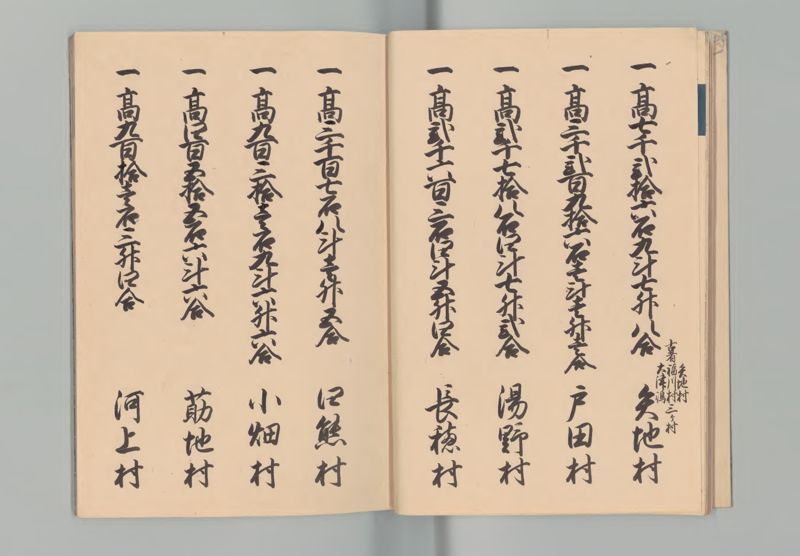 一高七千弐拾六石九斗七升八合
古者
矢地村
福川村
大津島
三ヶ村
矢地村
一高三千弐百九拾六石壱斗壱升壱合
戸田村
一高弐千七拾八石四斗七升弐合
湯野村
一高弐千六百三石四斗五升四合
長穂村
一高三千百七石八斗壱升五合
四熊村
一高九百三拾壱石九斗六升六合
小畑村
一高四百五拾五石六斗六合
莇地村
一高九百拾壱石三升四合
河上村